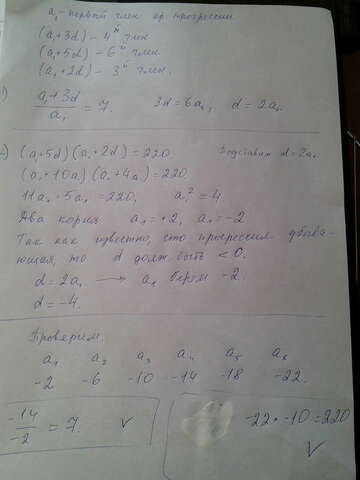 a₁ - первый член ар. прогрессии
(a₁+3d) - 4й член
(a₁+5d) - 6й член
(a₁+2d) - 3й член.
) (a₁+3d)/a₁ = 7. 3d=6a₁, d=2a₁.
) (a₁+5d)(a₁+2d)=220. Подставим d=2a₁
(a₁+10a₁)(a₁+4a₁)=220.
11a₁·5a₁=220, a₁²=4
Два корня a₁=+2, a₁=-2
Так как известно, что прогрессия убыва-
ющая, то d должно быть <0.
d=2a₁ → a₁ берем -2.
d=-4.
Проверим.
a₁ a₂ a₃ a₄ a₅ a₆
-2 -6 -10 -14 -18 -22.
-14/-2 = 7. V
-22·-10=220
V